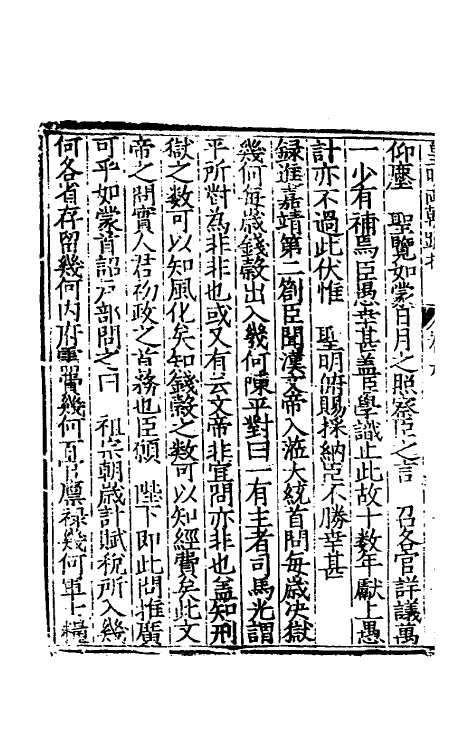 仰塵　聖覽如蒙日月之照察臣之言　召各官詳議萬
一少有補焉臣愚幸甚蓋臣學識止此故十數年獻上愚
計亦不過此伏惟　聖明俯賜採納臣不勝幸甚
録進嘉靖第二劄臣聞漢文帝入涖大統首問每歲决獄
幾何每歲錢穀出入幾何陳平對曰一有主者司馬光謂
平所對為非非也或又有云文帝非宜問亦非也盖知刑
獄之數可以知風化矣知錢穀之數可以知經費矣此文
帝之問實人君初政之首務也臣願　陛下即此問推廣
可乎如蒙首詔户部問之曰　祖宗朝歲計賦稅所入幾
何各省存留幾何内府費幾何百官廪禄幾何軍士糧